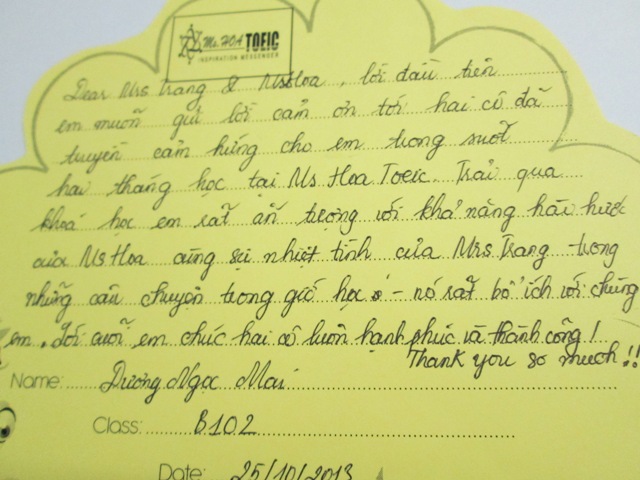 Ms. HOA TOEIC
INSPIRATION MESSENGER
Dear Mrs Trang & Ms Hoa, lời đầu tiên
em muốn gửi lời cảm ơn tới hai cô đã
truyền cảm hứng cho em trong suốt
hai tháng học tại Ms Hoa Toeic. Trải qua
khoá học em rất ấn tượng với khả năng hài hước
của Ms Hoa cùng sự nhiệt tình của Mrs Trang trong
những câu chuyện trong giờ học - nó rất bổ ích với chúng
em. Lời cuối em chúc hai cô luôn hạnh phúc và thành công!
Thank you so much!!
Name: Dương Ngọc Mai
Class: B102
Date: 25/10/2013